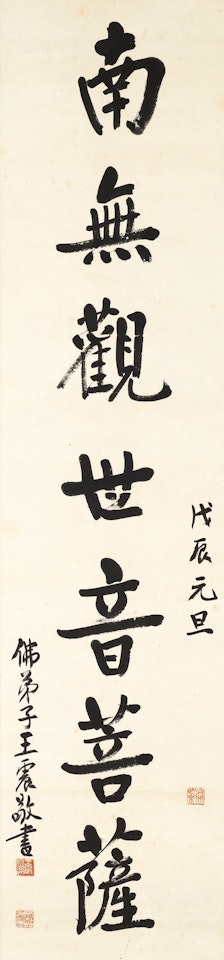 戊辰元旦
南無觀世音菩薩
佛弟子王震敬書